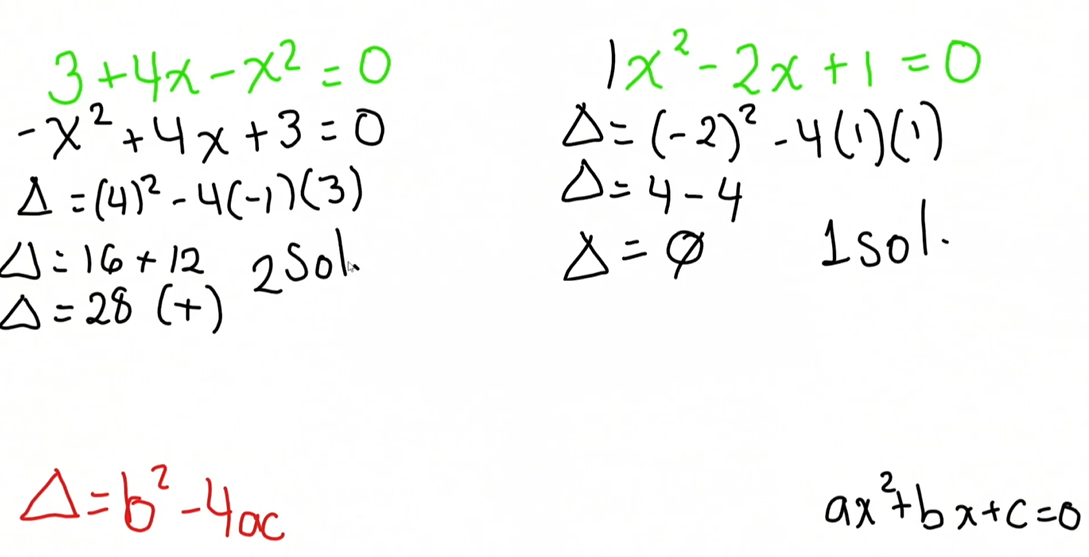 3 + 4x - x² = 0
-x² + 4x + 3 = 0
Δ = (4)² - 4(-1)(3)
Δ = 16 + 12
2 Sol.
Δ = 28 (+)
1x² - 2x + 1 = 0
Δ = (-2)² - 4(1)(1)
Δ = 4 - 4
Δ = 0
1 sol.
Δ = b² - 4ac
ax² + bx + c = 0